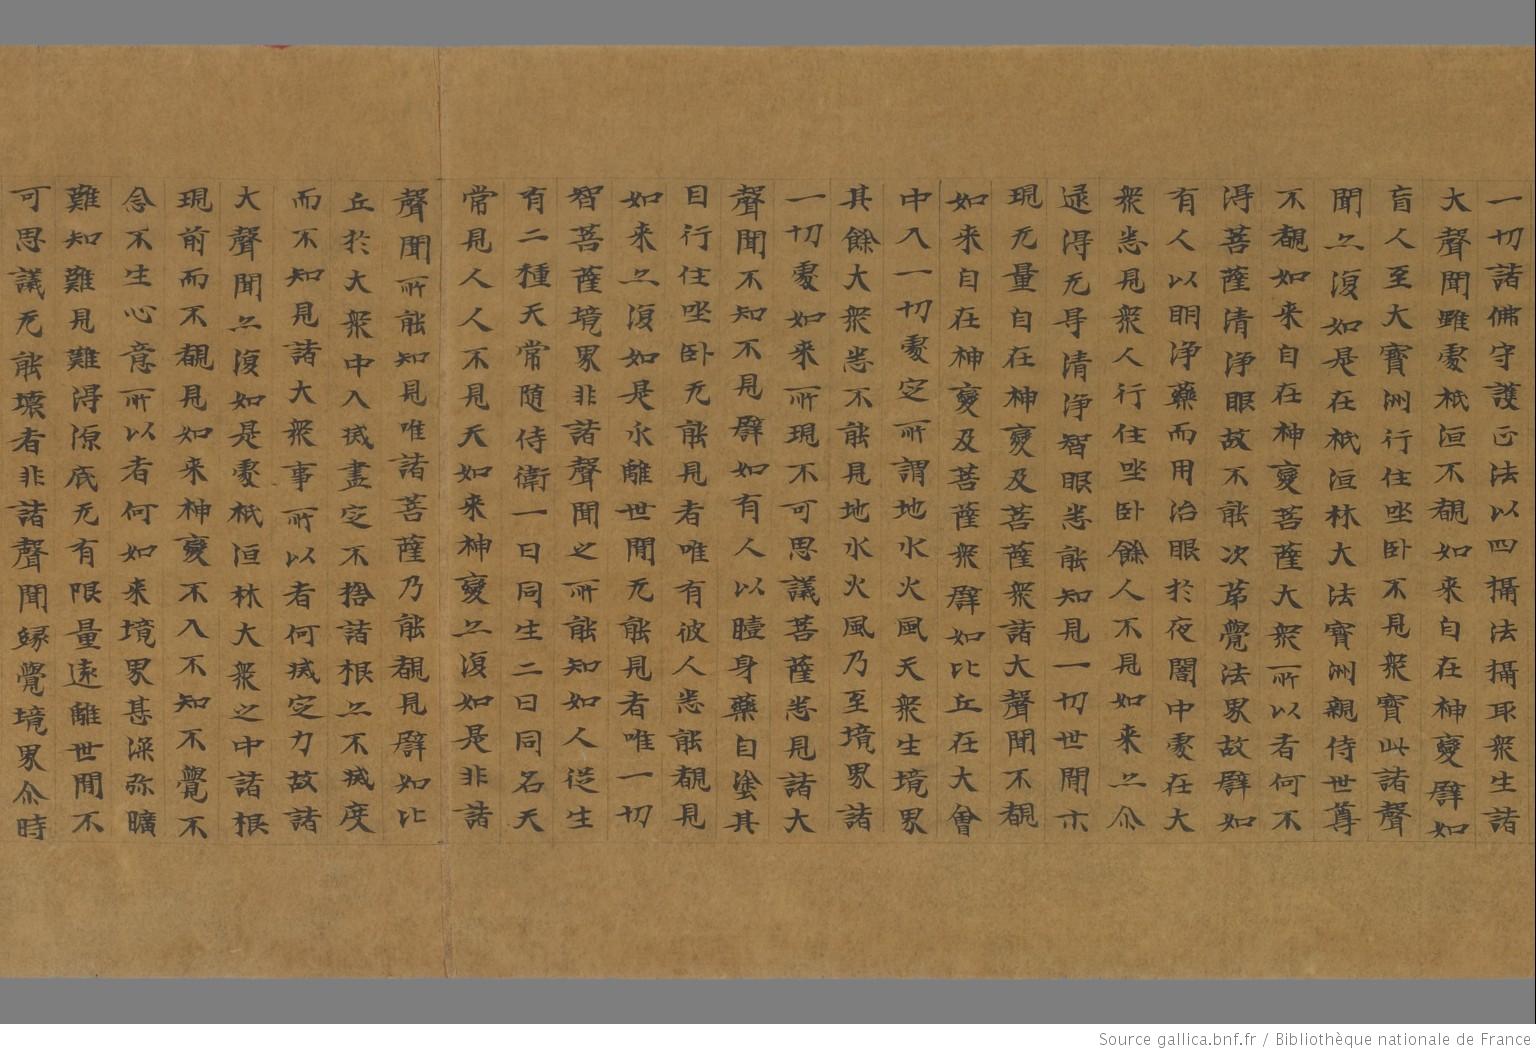 一切諸佛守護正法以四攝法攝取衆生諸
大聲聞雖處祇洹不覩如来自在神變譬如
盲人至大寳洲行住坐卧不見衆寳此諸聲
聞亦復如是在祇洹林大法寳洲親侍世尊
不覩如来自在神變菩薩大衆所以者何不
得菩薩清淨眼故不能次苐覺法界故譬如
有人以明淨藥而用治眼於夜闇中處在大
衆悉見衆人行住坐卧餘人不見如来亦尒
逮得无㝵清淨智眼悉能知見一切世間示
現无量自在神變及菩薩衆諸大聲聞不覩
如来自在神變及菩薩衆譬如比丘在大會
中入一切處定所謂地水火風天衆生境界
其餘大衆悉不能見地水火風乃至境界諸
一切處如来所現不可思議菩薩悉見諸大
聲聞不知不見譬如有人以曀身藥自塗其
目行住坐卧无能見者唯有彼人悉能覩見
如来亦復如是永離世間无能見者唯一切
智菩薩境界非諸聲聞之所能知如人從生
有二種天常随侍衛一曰同生二曰同名天
常見人人不見天如来神變亦復如是非諸
聲聞所能知見唯諸菩薩乃能覩見譬如比
丘於大衆中入滅盡定不捨諸根亦不滅度
而不知見諸大衆事所以者何滅定力故諸
大聲聞亦復如是處祇洹林大衆之中諸根
現前而不覩見如来神變不入不知不覺不
念不生心意所以者何如来境界甚深弥曠
難知難見難得源底无有限量遠離世間不
可思議无能壞者非諸聲聞縁覺境界尒時
Source gallica.bnf.fr / Bibliothèque nationale de France